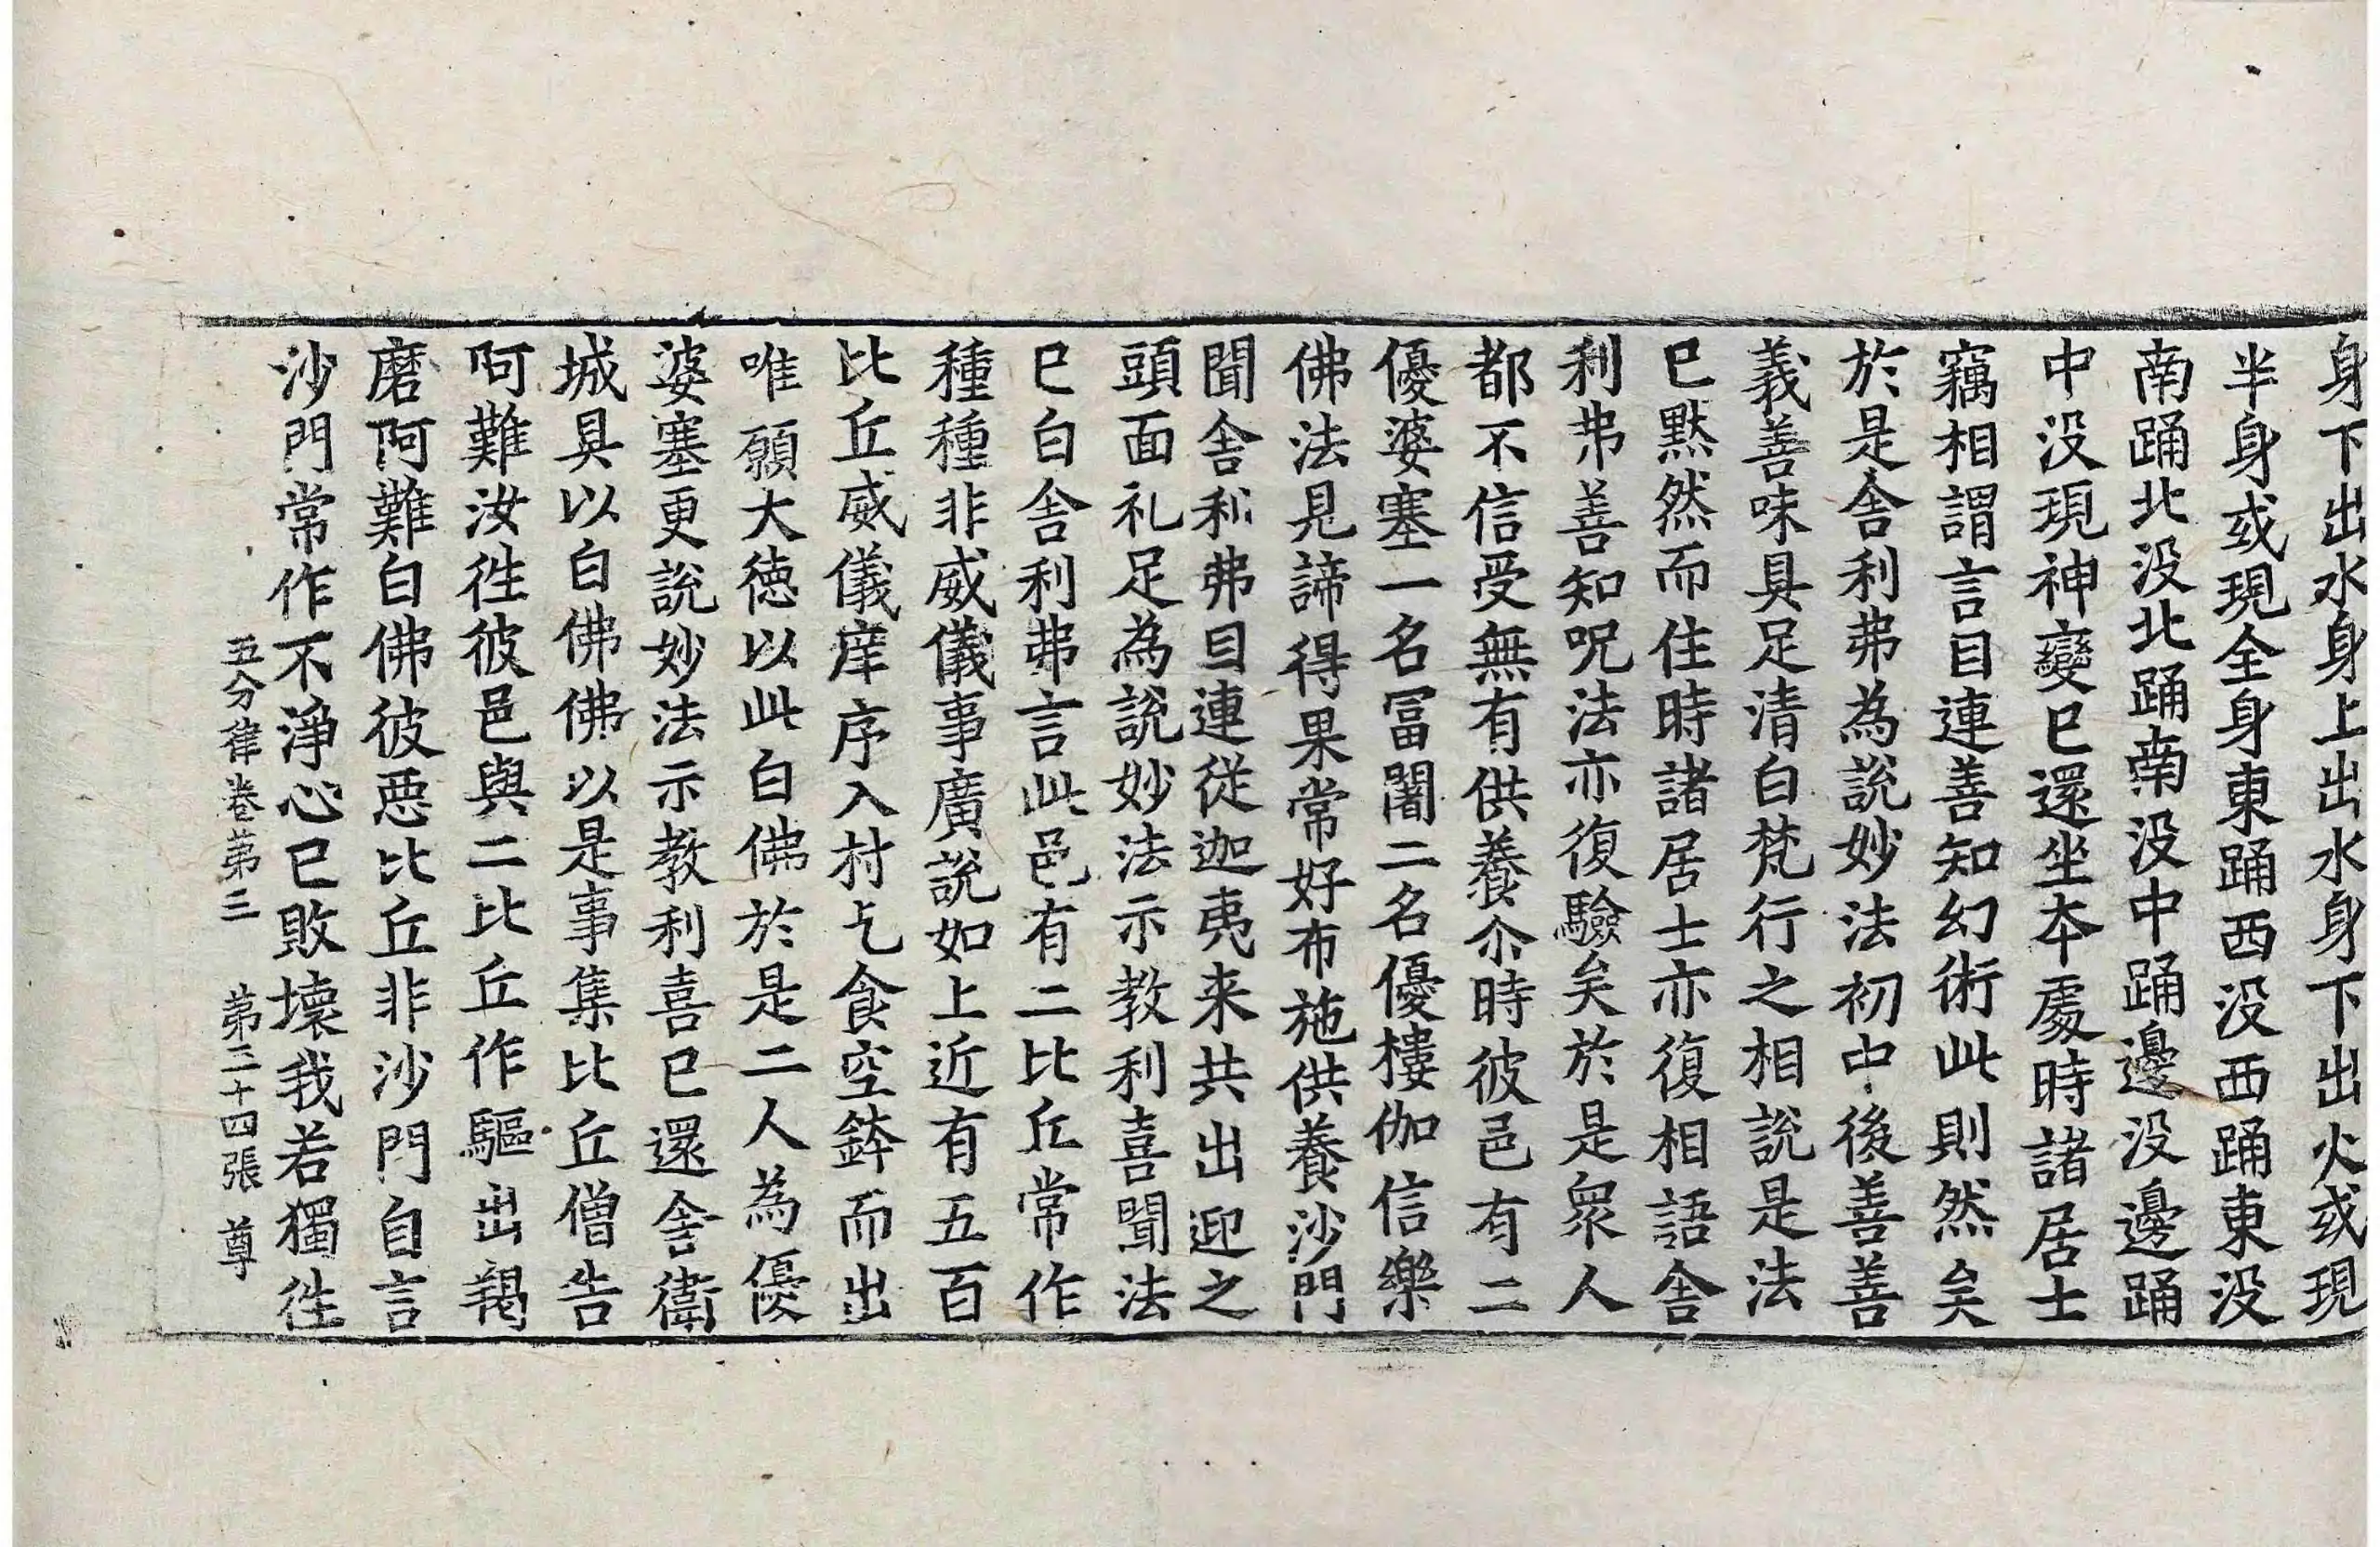 身下出水身上出水身下出火或現
半身或現全身東踊西没西踊東没
南踊北没北踊南没中踊邊没邊踊
中没現神變已還坐夲處時諸居士
竊相謂言目連善知幻術此則然矣
於是舍利弗為說妙法初中後善善
義善味具足清白梵行之相說是法
已黙然而住時諸居士亦復相語舍
利弗善知呪法亦復驗矣於是衆人
都不信受無有供養尒時彼邑有二
優婆塞一名冨闍二名優樓伽信樂
佛法見諦得果常好布施供養沙門
聞舍利弗目連従迦夷来共出迎之
頭面礼足為說妙法示教利喜聞法
已白舍利弗言此邑有二比丘常作
種種非威儀事廣說如上近有五百
比丘威儀庠序入村乞食空鉢而出
唯願大徳以此白佛於是二人為優
婆塞更說妙法示教利喜已還舍衛
城具以白佛佛以是事集比丘僧告
阿難汝徃彼邑與二比丘作驅出羯
磨阿難白佛彼惡比丘非沙門自言
沙門常作不淨心已敗壞我若獨徃
五分律卷第三 第三十四張 尊